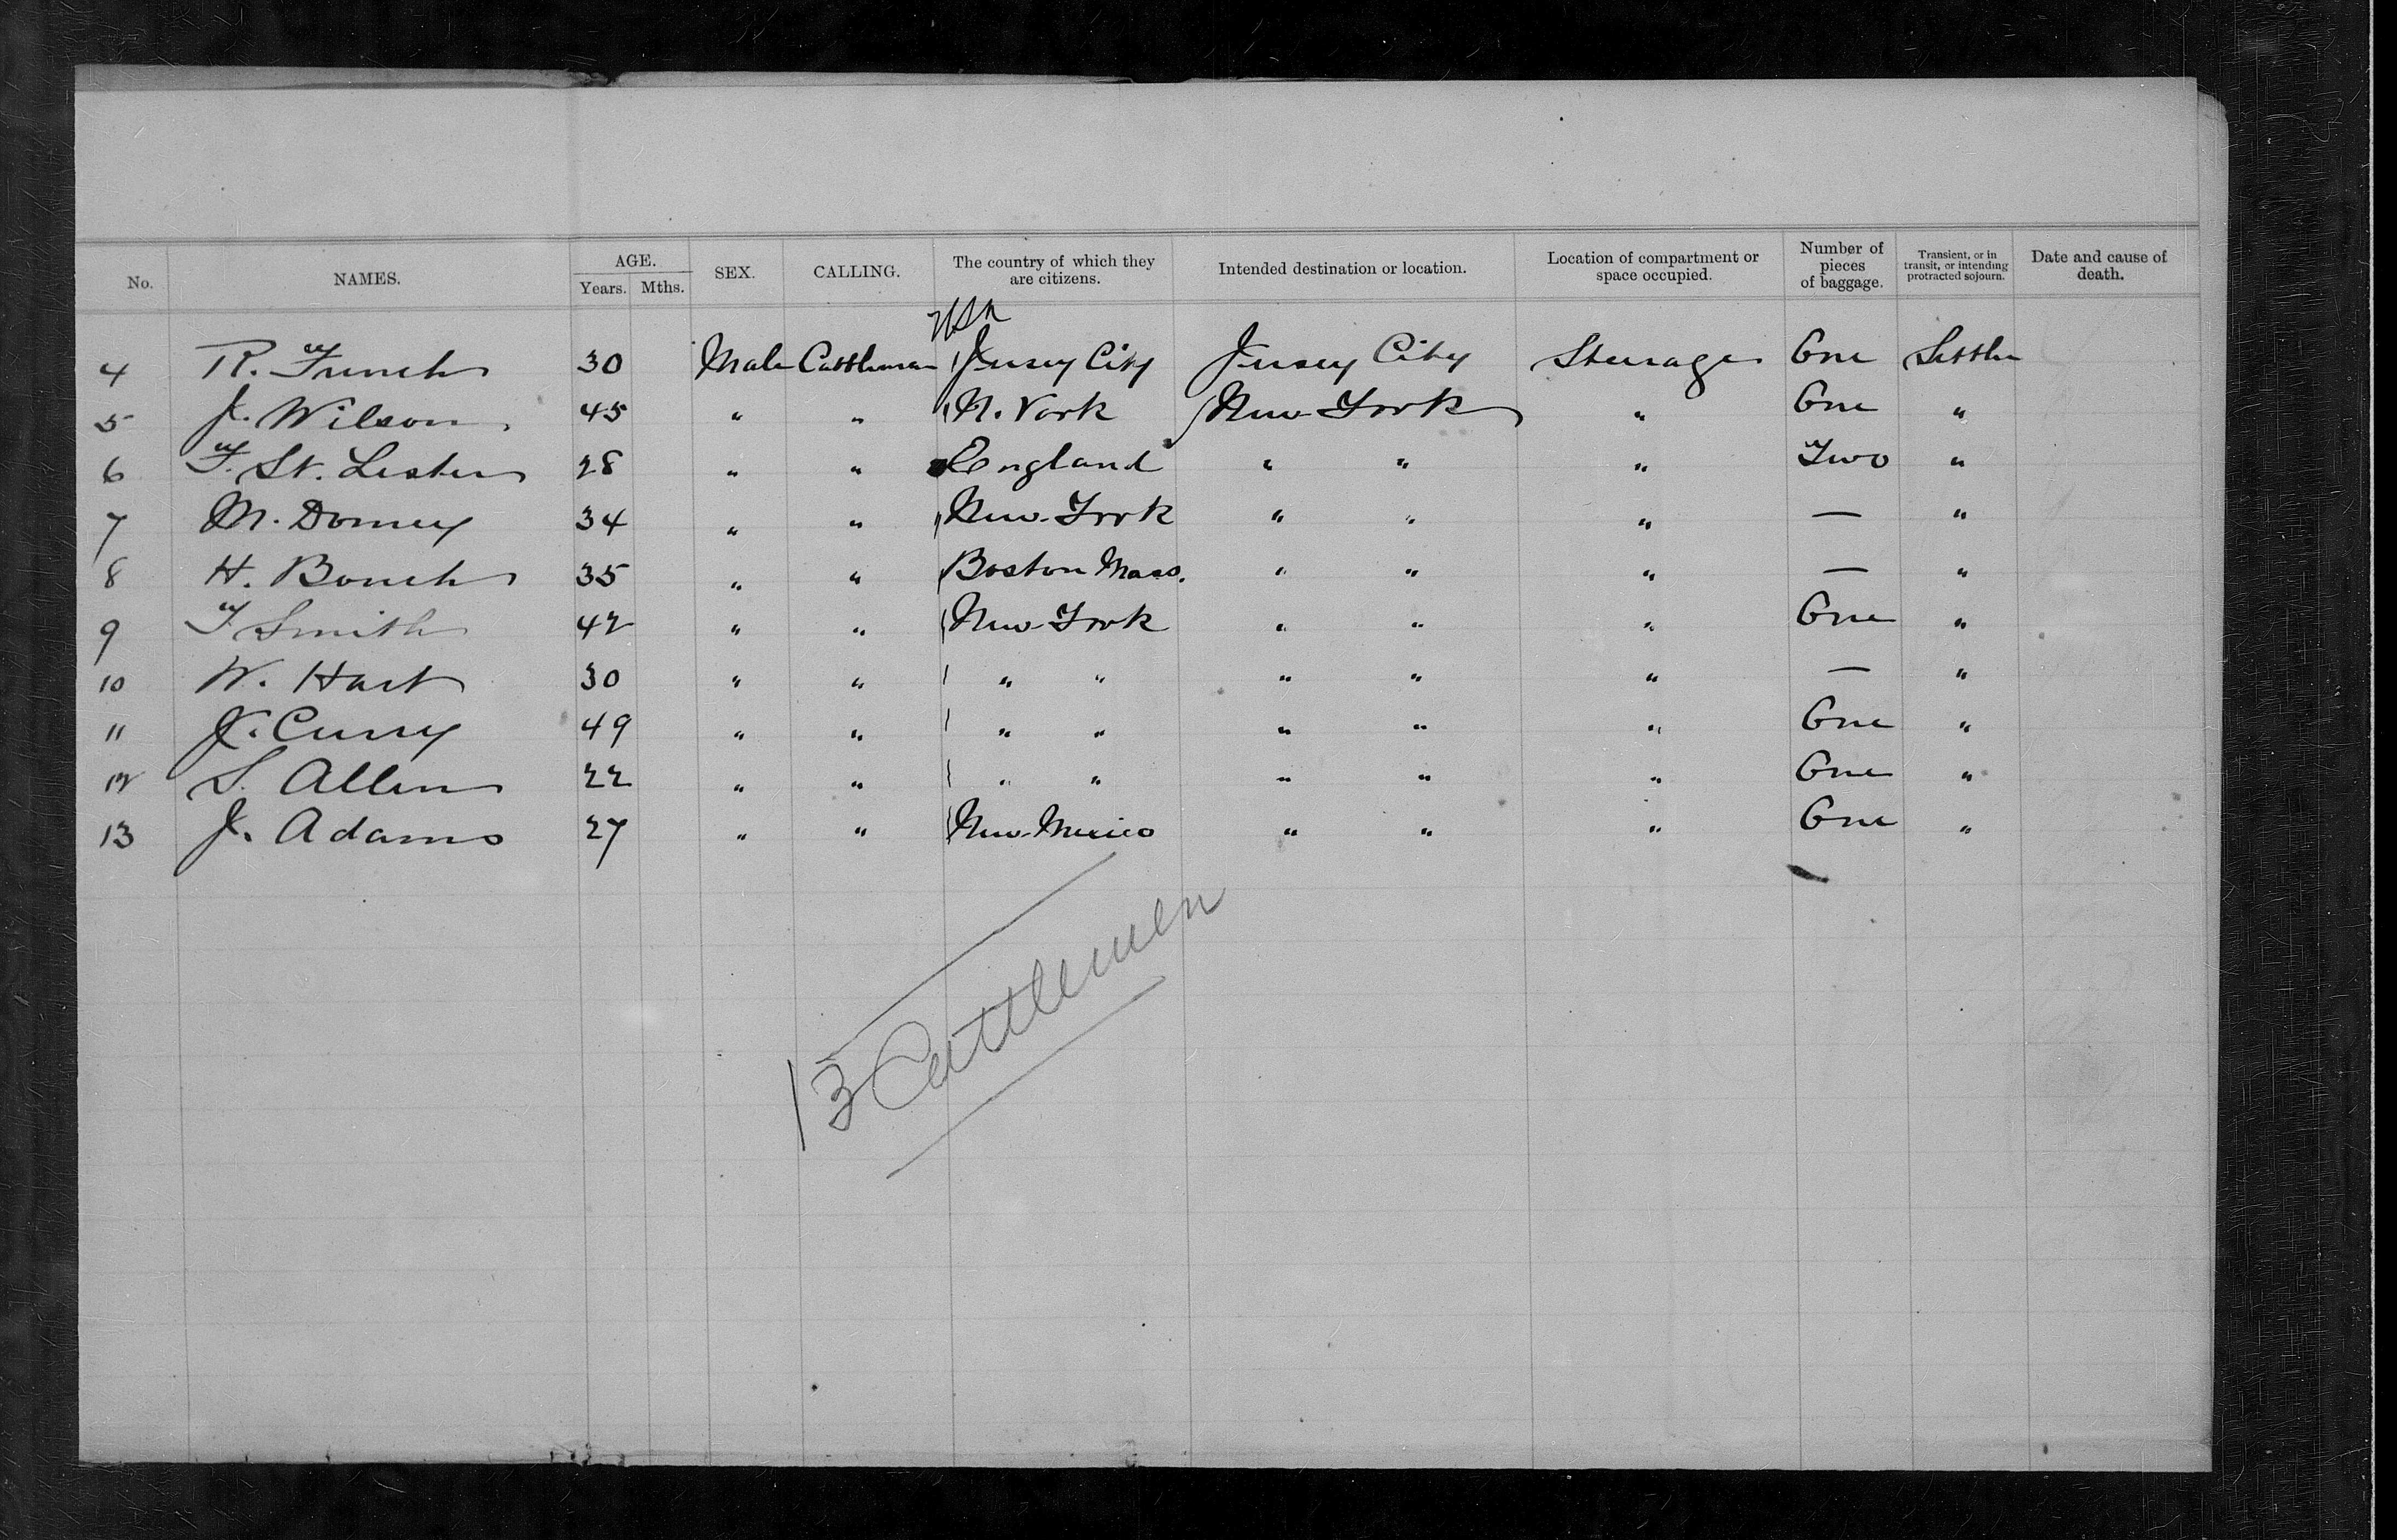 No. NAMES. AGE. Years. Mths. SEX. CALLING. The country of which they are citizens. Intended destination or location. Location of compartment or space occupied. Number of pieces of baggage. Transient, or in transit, or intending protracted sojourn. Date and cause of death.
USA
4 R. French 30 Male Cattleman Jersey City Jersey City Steerage One Settler
5 J. Wilson 45 " " N. York New York " One "
6 F. St. Lester 28 " " England " " " Two "
7 M. 34 " " New York " " " — "
8 H. 35 " " Boston Mass. " " " — "
9 F. Smith 42 " " New York " " " One "
10 W. Hart 30 " " " " " " " — "
11 J. Curry 49 " " " " " " " One "
12 S. Allen 22 " " " " " " " One "
13 J. Adams 27 " " New Mexico " " " One "
13 Cattlemen